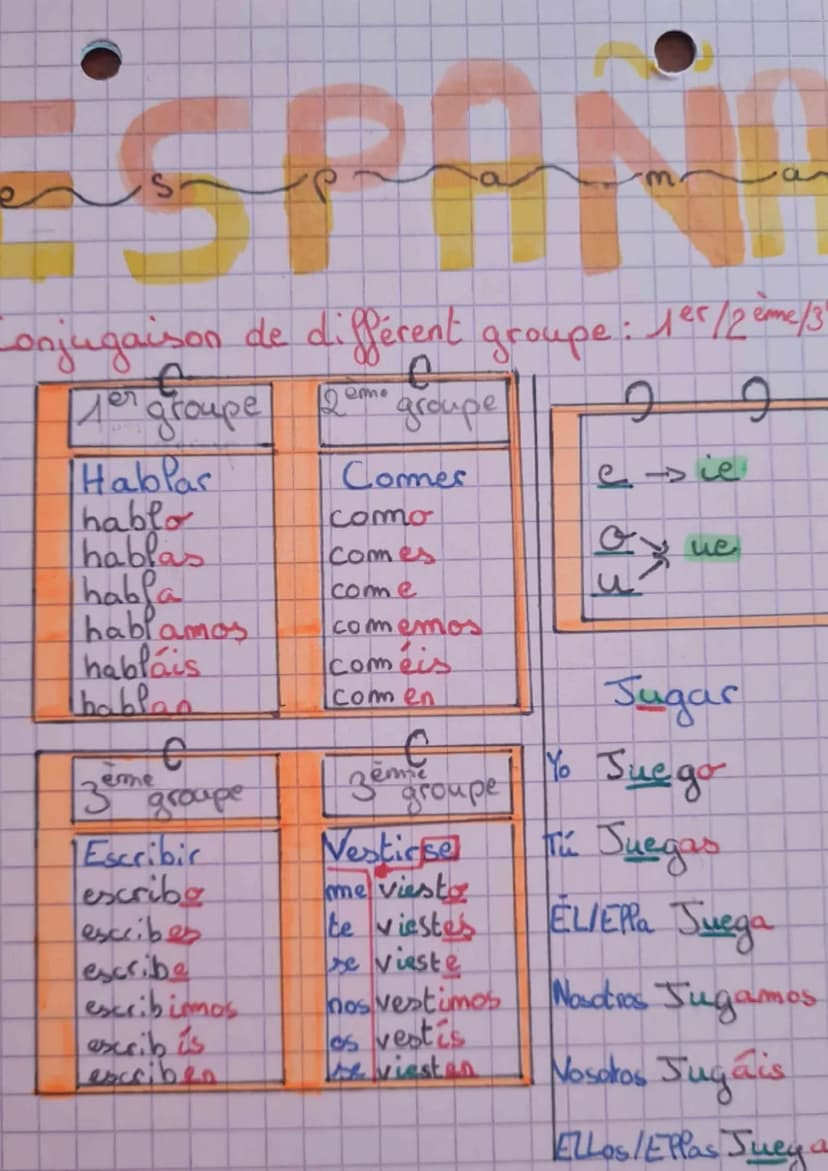 ESPAÑA
e s p a m a
Conjugaison de différent groupe : 1er/2ème/3
1er groupe
Hablar
hablo
hablas
habla
hablamos
habláis
hablan
2ème groupe
Comer
como
comes
come
comemos
coméis
comen
3ème groupe
Escribir
escribo
escribes
escribe
escribimos
escribís
escriben
3ème groupe
Vestirse
me viesto
te viestes
se vieste
nos vestimos
os vestís
se viesten
e → ie
o
u → ue
Jugar
Yo Juego
Tú Juegas
ÉL/Ella Juega
Nosotros Jugamos
Vosotros Jugáis
ELLos/Ellas Juega